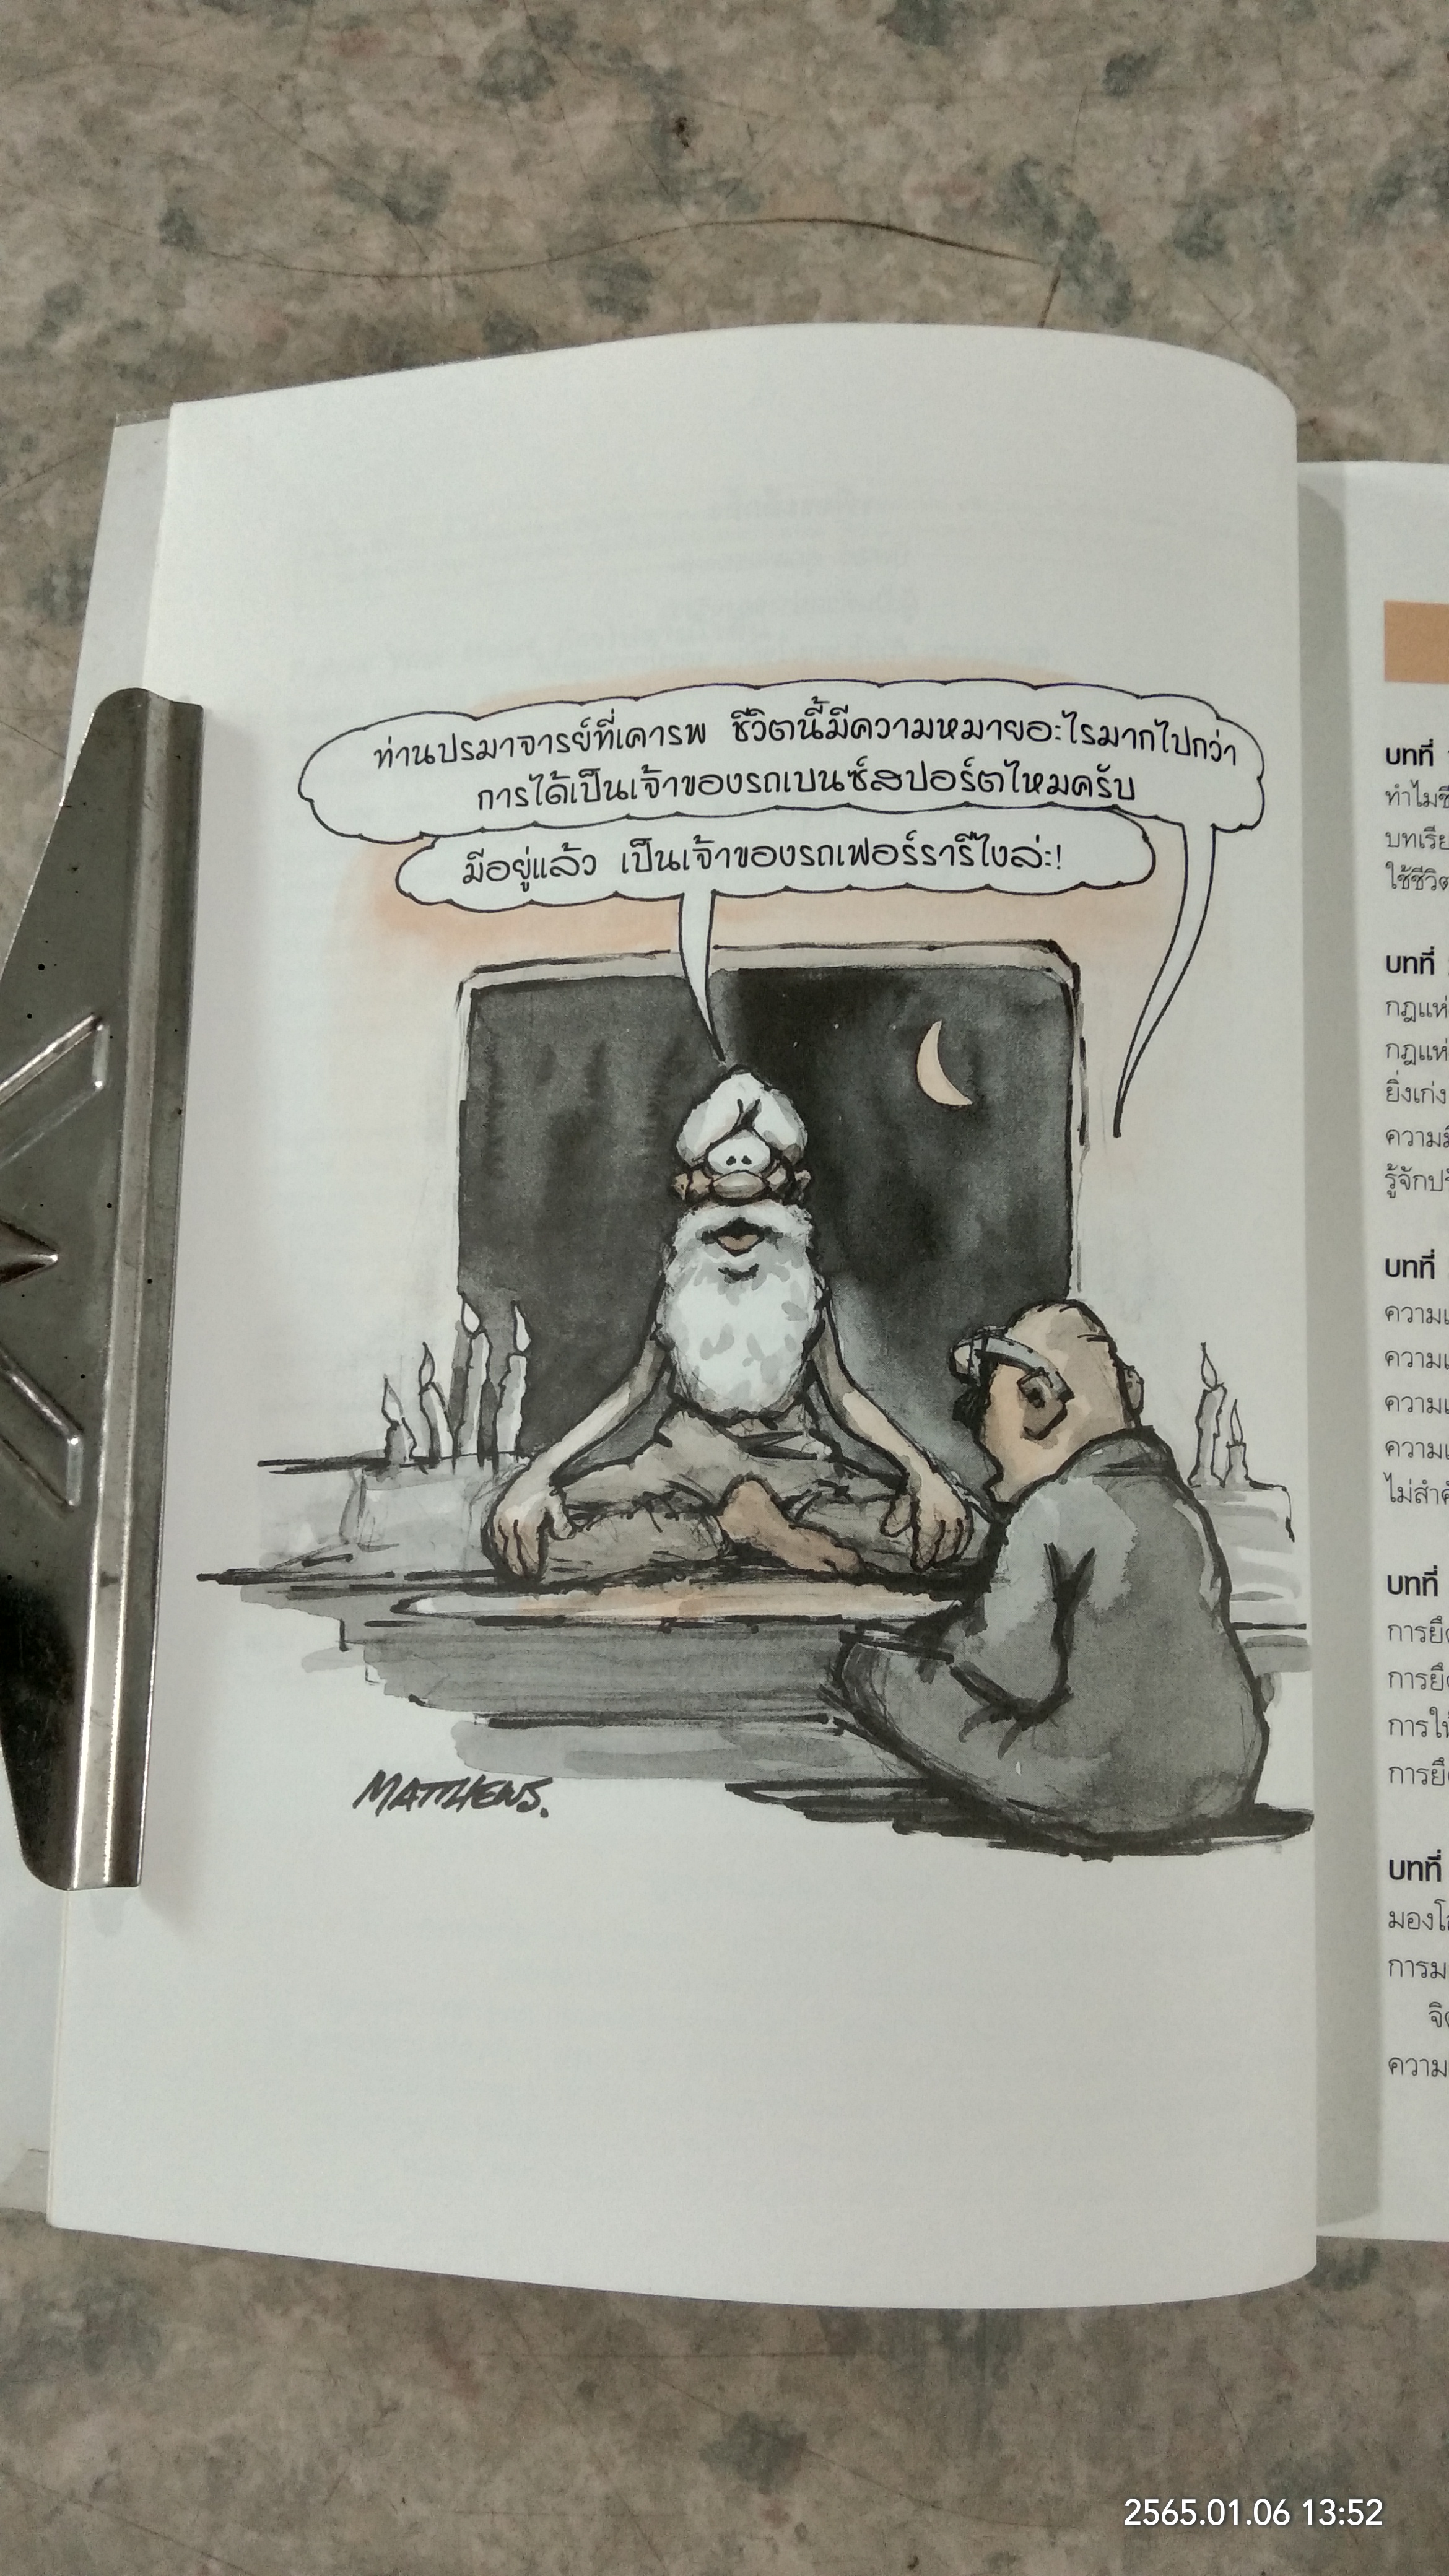 ท่านปรมาจารย์ที่เคารพ ชีวิตนี้มีความหมายอะไรมากไปกว่า
การได้เป็นเจ้าของรถเบนซ์สปอร์ตไหมครับ
มีอยู่แล้ว เป็นเจ้าของรถเฟอร์รารีไงล่ะ!
MATTHEWS.
บทที่
บทเรีย
ใช้ชีวิต
บทที่
กฎแห่
กฎแห่
ยิ่งเก่ง
รู้จักปรั
บทที่
ไม่สำคั
บทที่
การยึด
การยึด
การให้
การยึด
บทที่
มองโล
การม
ความ
2565.01.06 13:52